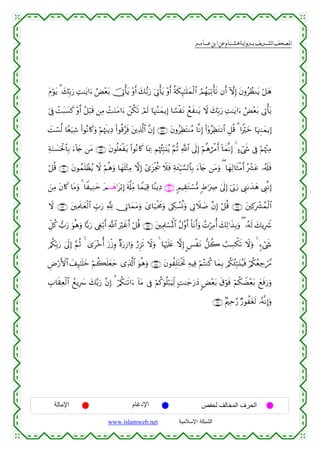 المصحف الشريف برواية هشام عن ابن عامر
هَلْ يَنظُرُونَ إِلَّآ أَن تَأْتِيَهُمُ ٱلْمَلَٰٓئِكَةُ أَوْ يَأْتِيَ رَبُّكَ أَوْ يَأْتِيَ بَعْضُ ءَايَٰتِ رَبِّكَ ۗ يَوْمَ
يَأْتِي بَعْضُ ءَايَٰتِ رَبِّكَ لَا يَنفَعُ نَفْسًا إِيمَٰنُهَا لَمْ تَكُنْ ءَامَنَتْ مِن قَبْلُ أَوْ كَسَبَتْ فِىٓ
إِيمَٰنِهَا خَيْرًا ۗ قُلِ ٱنتَظِرُوٓا۟ إِنَّا مُنتَظِرُونَ ۝ إِنَّ ٱلَّذِينَ فَرَّقُوا۟ دِينَهُمْ وَكَانُوا۟ شِيَعًا لَّسْتَ
مِنْهُمْ فِى شَىْءٍ ۚ إِنَّمَآ أَمْرُهُمْ إِلَى ٱللَّهِ ثُمَّ يُنَبِّئُهُم بِمَا كَانُوا۟ يَفْعَلُونَ ۝ مَن جَآءَ بِٱلْحَسَنَةِ
فَلَهُۥ عَشْرُ أَمْثَالِهَا ۖ وَمَن جَآءَ بِٱلسَّيِّئَةِ فَلَا يُجْزَىٰٓ إِلَّا مِثْلَهَا وَهُمْ لَا يُظْلَمُونَ ۝ قُلْ
إِنَّنِى هَدَىٰنِى رَبِّىٓ إِلَىٰ صِرَٰطٍ مُّسْتَقِيمٍ ۝ دِينًا قِيَمًا مِّلَّةَ إِبْرَٰهَٰمَ حَنِيفًا ۚ وَمَا كَانَ مِنَ
ٱلْمُشْرِكِينَ ۝ قُلْ إِنَّ صَلَاتِى وَنُسُكِى وَمَحْيَاىَ وَمَمَاتِى لِلَّهِ رَبِّ ٱلْعَٰلَمِينَ ۝ لَا
شَرِيكَ لَهُۥ ۖ وَبِذَٰلِكَ أُمِرْتُ وَأَنَا۠ أَوَّلُ ٱلْمُسْلِمِينَ ۝ قُلْ أَغَيْرَ ٱللَّهِ أَبْغِى رَبًّا وَهُوَ رَبُّ كُلِّ
شَىْءٍ ۚ وَلَا تَكْسِبُ كُلُّ نَفْسٍ إِلَّا عَلَيْهَا ۚ وَلَا تَزِرُ وَازِرَةٌ وِزْرَ أُخْرَىٰ ۚ ثُمَّ إِلَىٰ رَبِّكُم
مَّرْجِعُكُمْ فَيُنَبِّئُكُم بِمَا كُنتُمْ فِيهِ تَخْتَلِفُونَ ۝ وَهُوَ ٱلَّذِى جَعَلَكُمْ خَلَٰٓئِفَ ٱلْأَرْضِ
وَرَفَعَ بَعْضَكُمْ فَوْقَ بَعْضٍ دَرَجَٰتٍ لِّيَبْلُوَكُمْ فِى مَآ ءَاتَىٰكُمْ ۗ إِنَّ رَبَّكَ سَرِيعُ ٱلْعِقَابِ
وَإِنَّهُۥ لَغَفُورٌ رَّحِيمٌ ۝
الحرف المخالف لحفص الإدغام الإمالة
www.islamweb.net الشبكة الإسلامية